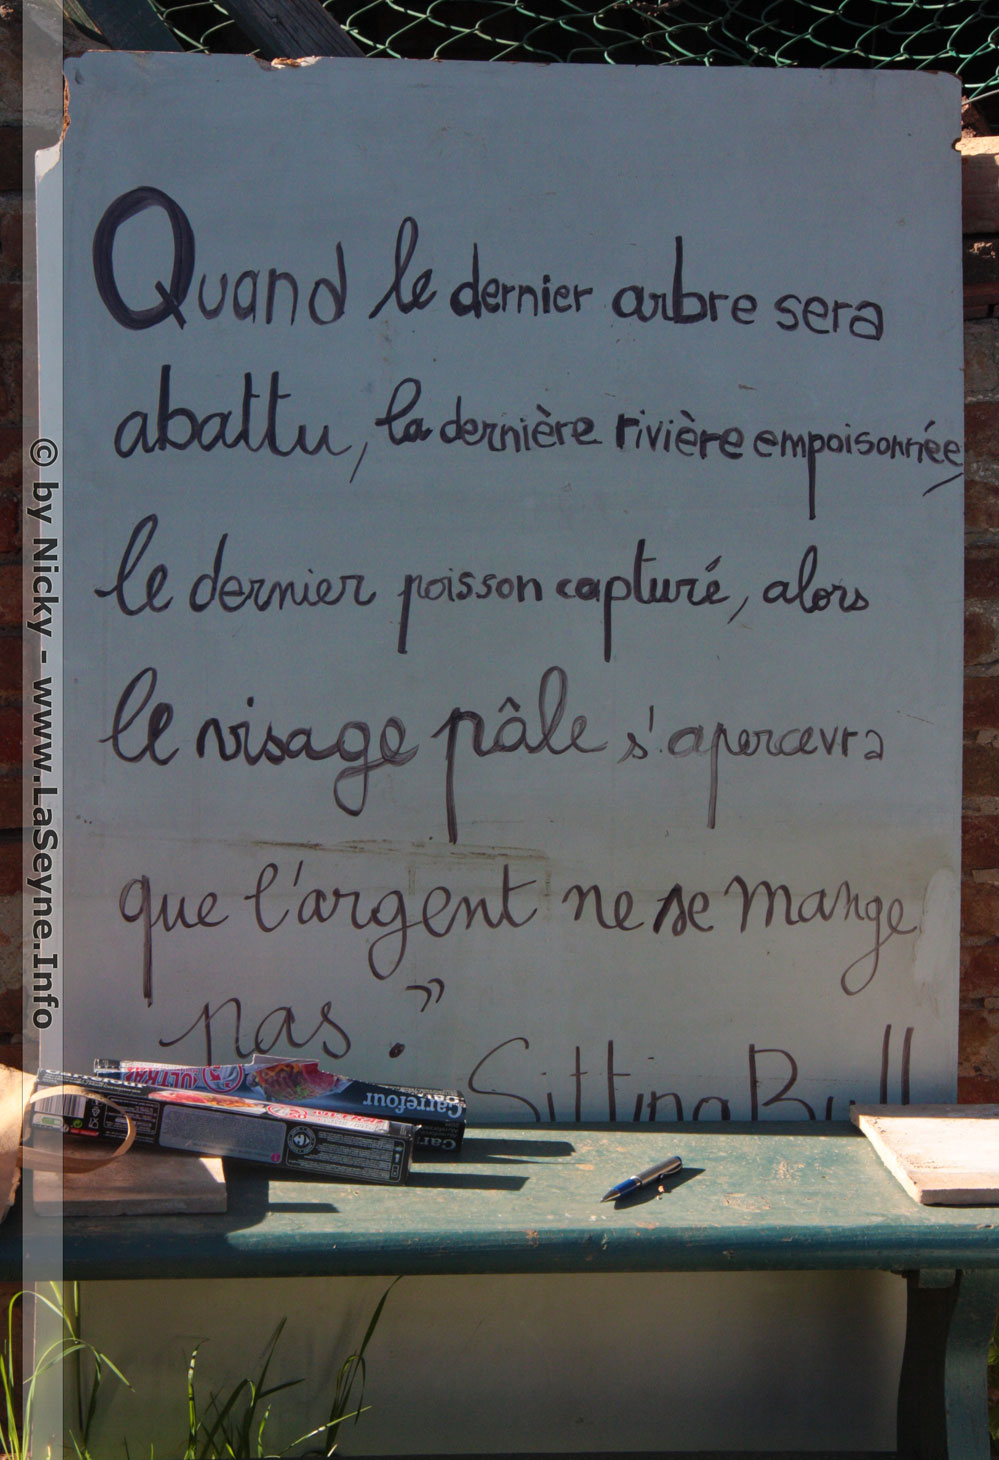 Quand le dernier arbre sera
abattu, la dernière rivière empoisonnée,
le dernier poisson capturé, alors
le visage pâle s'apercevra
que l'argent ne se mange
pas. »
Sitting Bull
ULTRA
Carrefour
© by Nicky - www.LaSeyne.Info